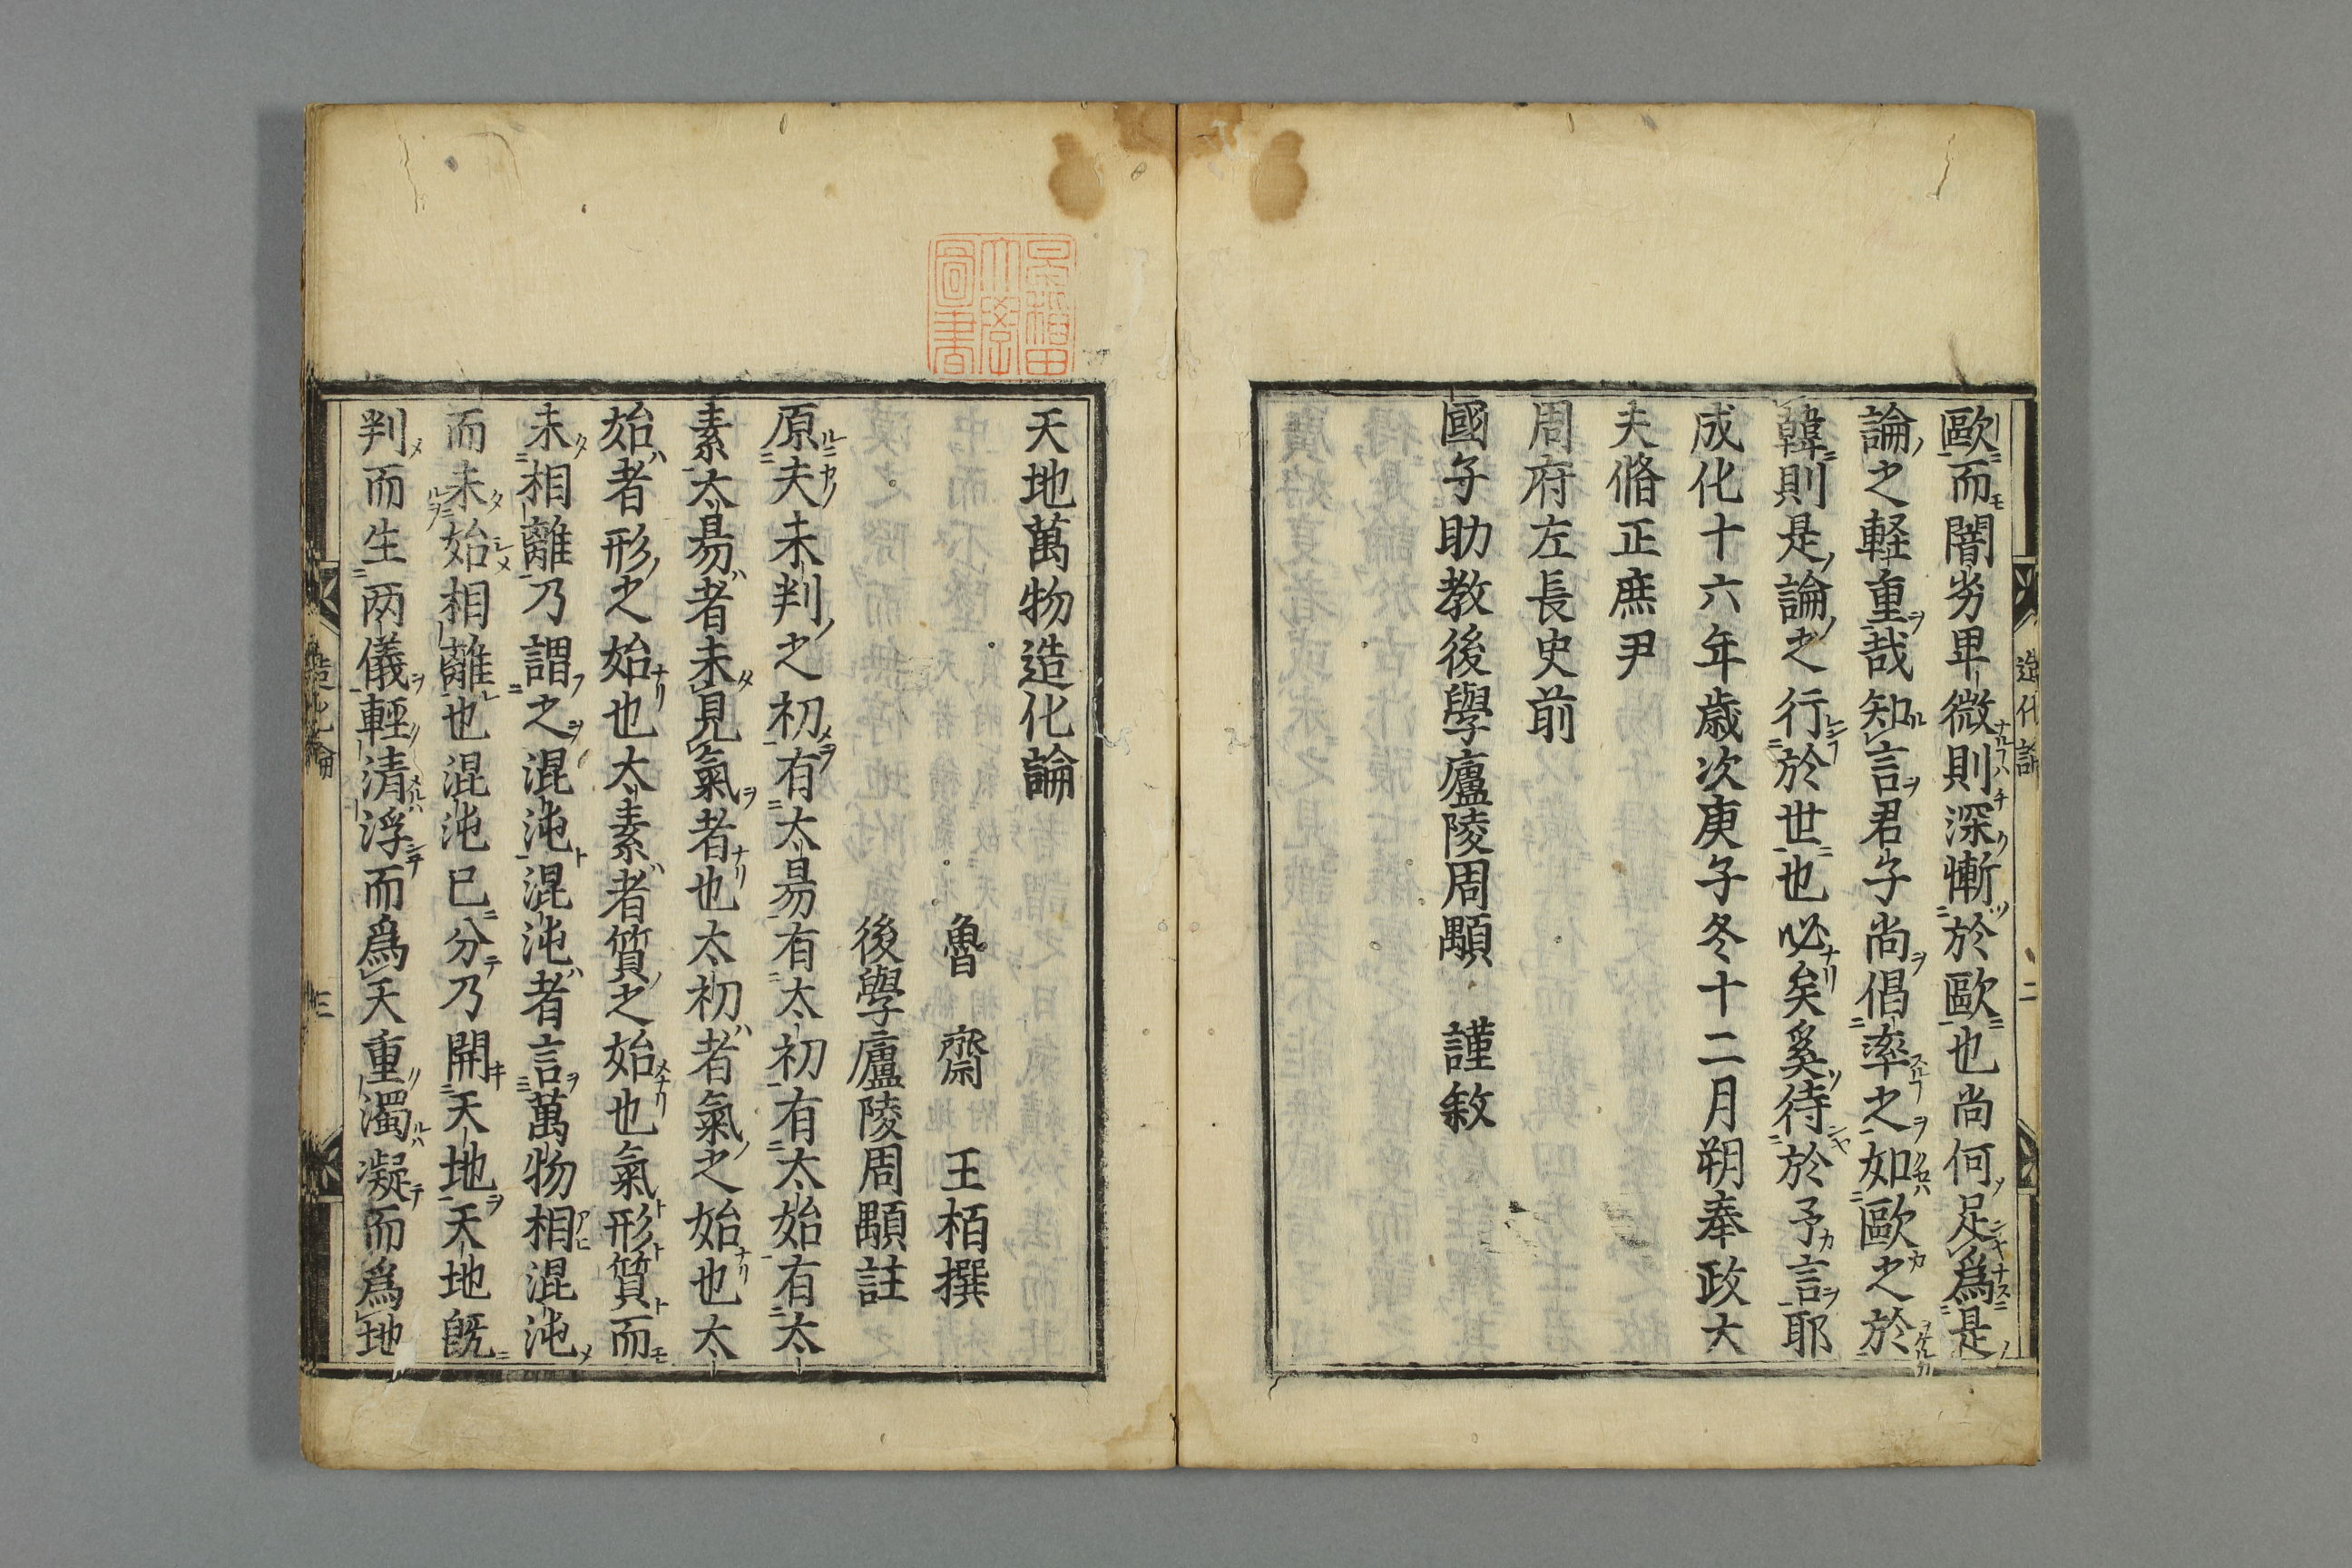 歐而闇劣卑微則深慚於歐也尚何足爲是
論之軽重哉知言君子尚倡率之如歐之於
韓則是論之行於世也必矣奚待於予言耶
成化十六年歳次庚子冬十二月朔奉政大
夫脩正庶尹
周府左長史前
國子助教後學廬陵周顒 謹敘
天地萬物造化論
魯齋 王栢撰
後學廬陵周顒註
原夫未判之初有太昜有太初有太始有太
素太昜者未見氣者也太初者氣之始也太
始者形之始也太素者質之始也氣形質而
未相離乃謂之混沌混沌者言萬物相混沌
而未始相離也混沌已分乃開天地天地旣
判而生两儀輕清浮而爲天重濁凝而爲地
造化論
三
早稲田大學圖書